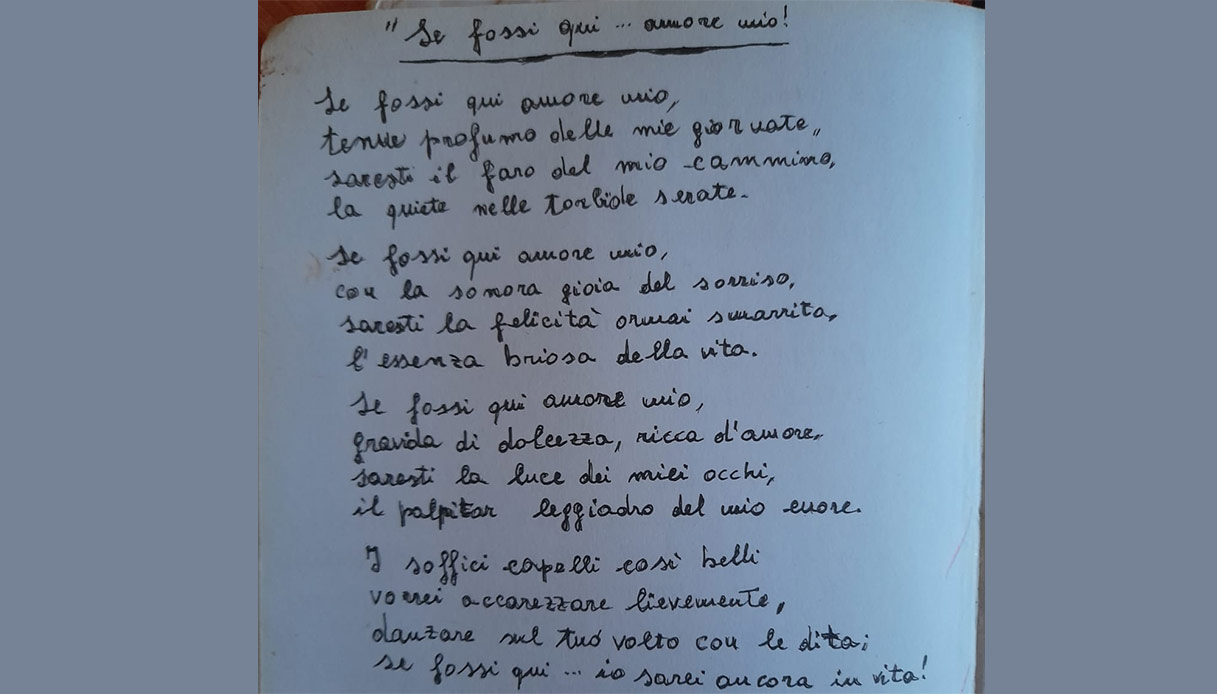 "Se fossi qui ... amore mio!
Se fossi qui amore mio,
tenue profumo delle mie giornate,
saresti il faro del mio cammino,
la quiete nelle torbide serate.
Se fossi qui amore mio,
con la sonora gioia del sorriso,
saresti la felicità ormai smarrita,
l'essenza briosa della vita.
Se fossi qui amore mio,
gravida di dolcezza, ricca d'amore,
saresti la luce dei miei occhi,
il palpitar leggiadro del mio cuore.
I soffici capelli così belli
vorrei accarezzare lievemente,
danzare sul tuo volto con le dita;
se fossi qui ... io sarei ancora in vita!